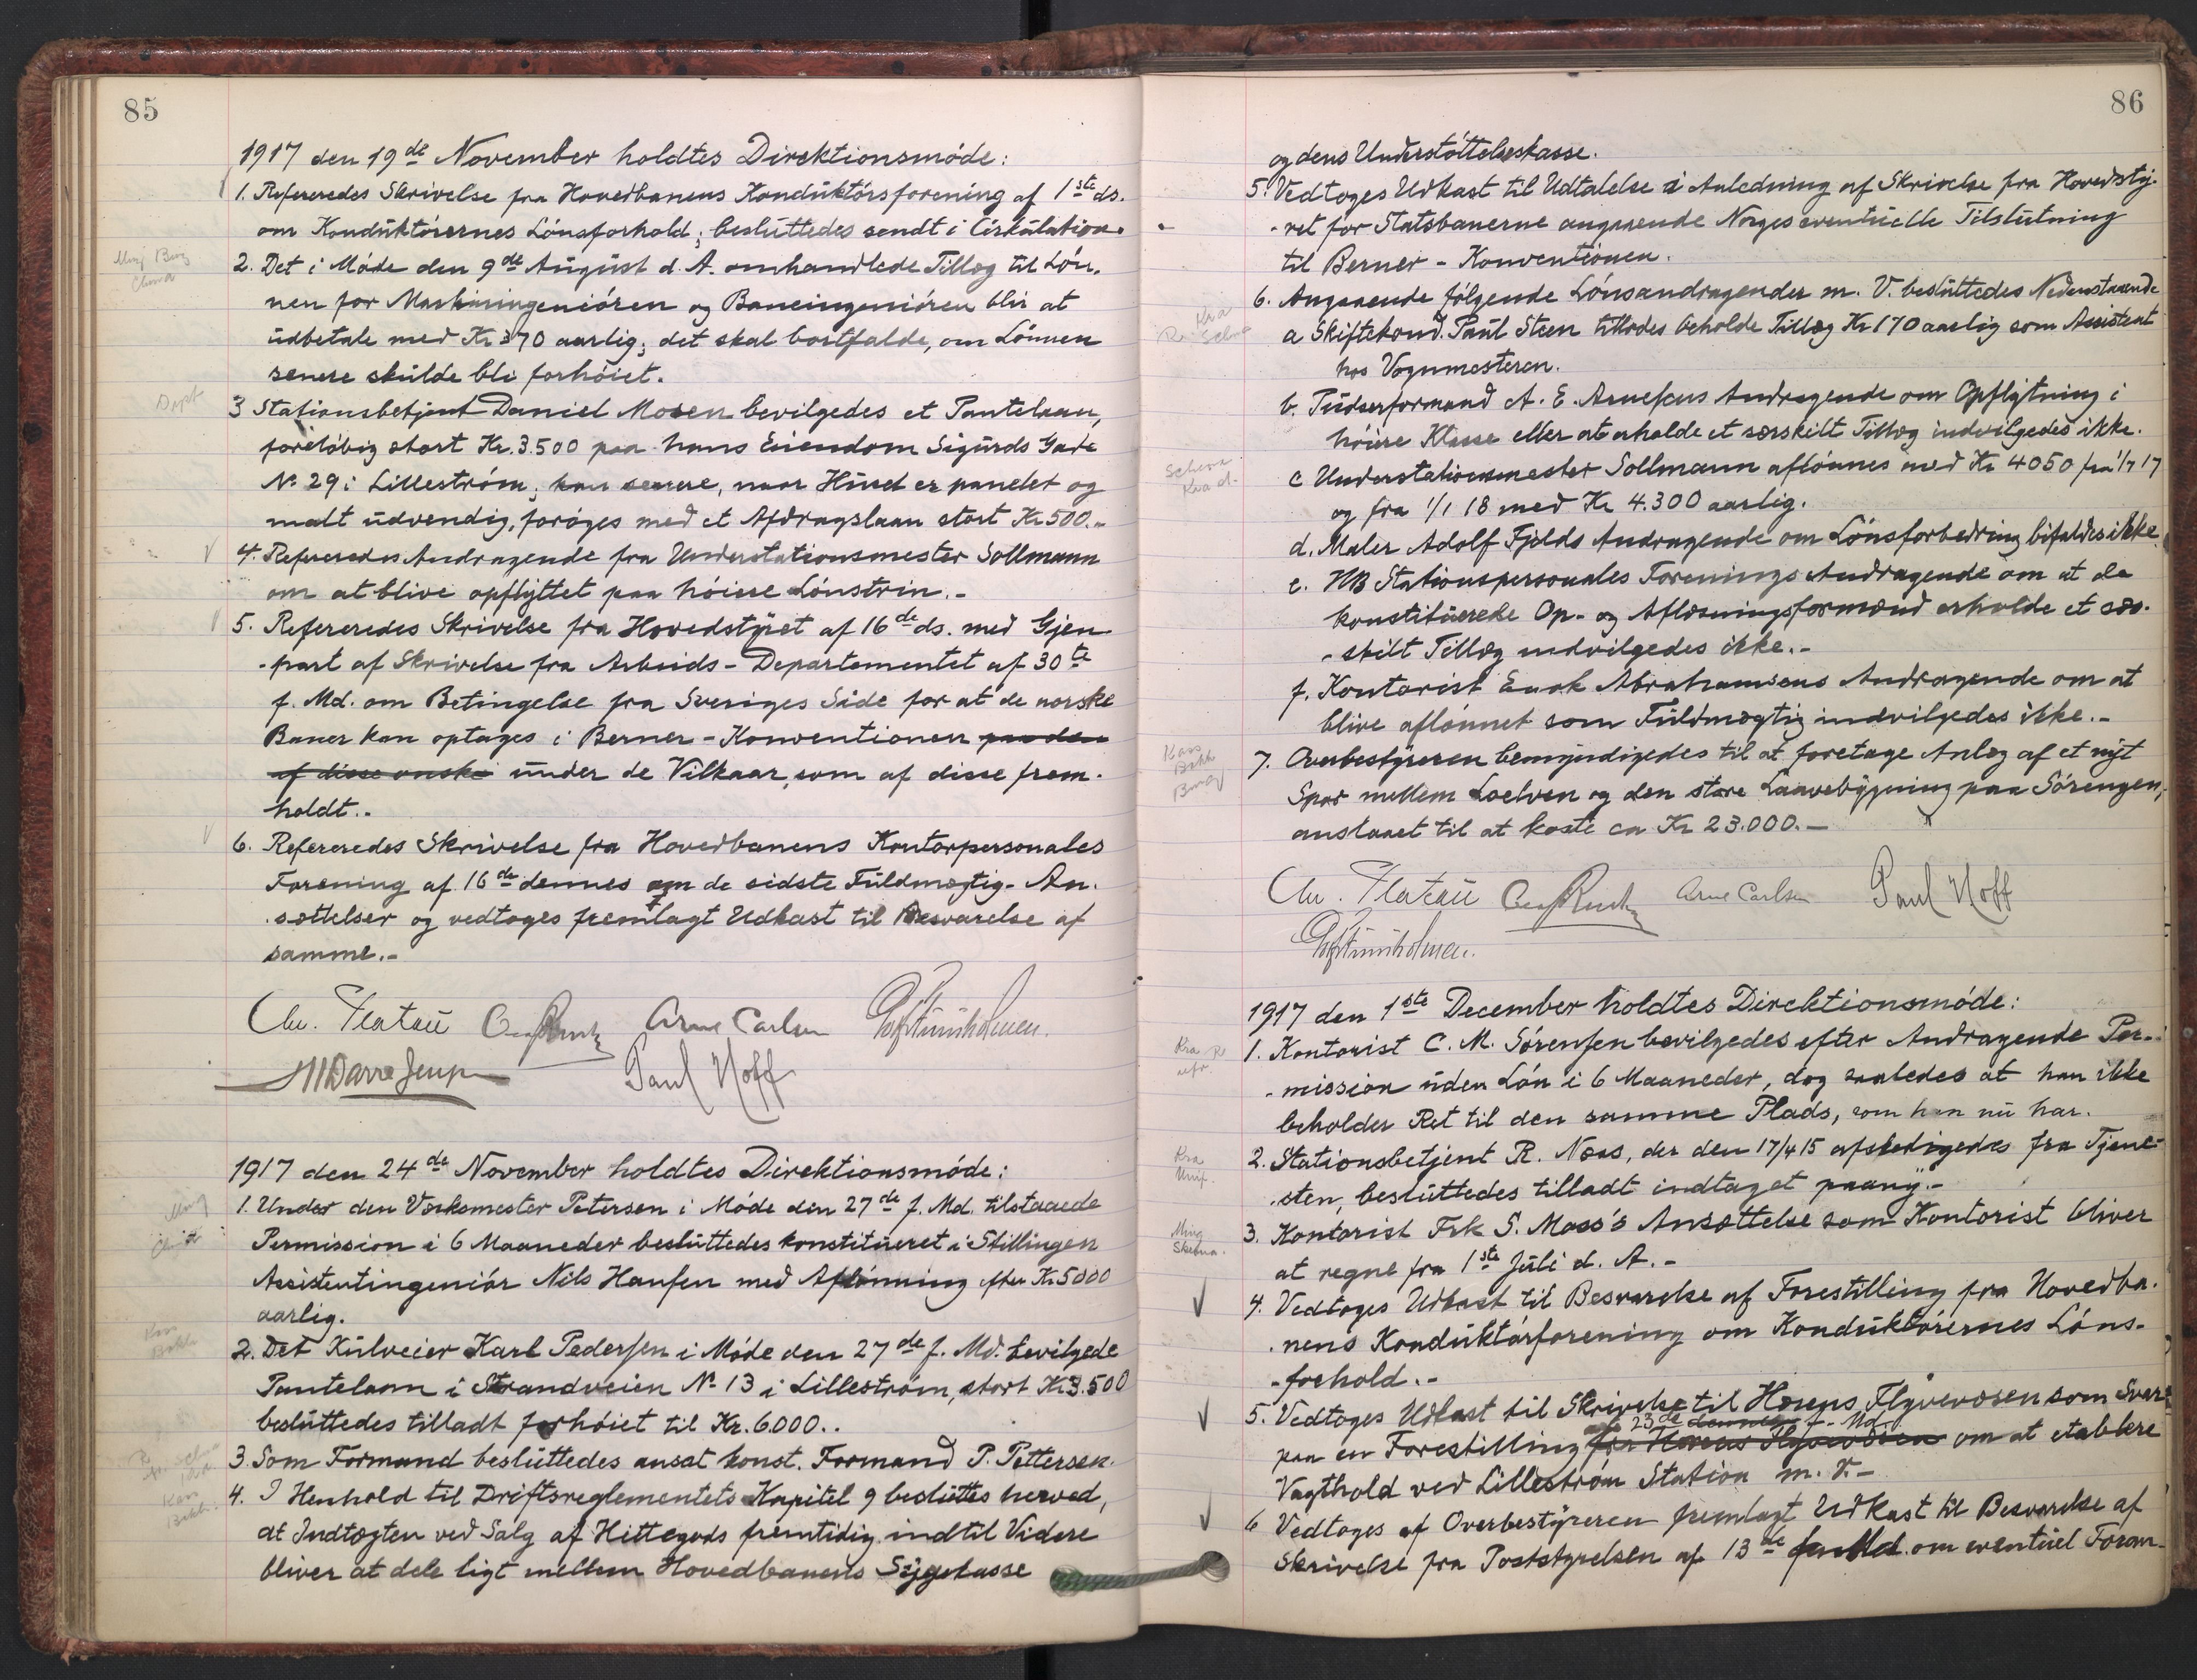 85
1917 den 19de November holdtes Direktionsmöde:
1. Refereredes Skrivelse fra Hovedbanens Konduktörsforening af 1ste ds.
om Konduktörernes Lönsforhold; besluttedes sendt i Cirkulation.
2. Det i Möde den 9de August d. A. omhandlede Tillæg til Løn-
nen for Maskiningeniören og Baneingeniören blir at
udbetale med Kr 370 aarlig; det skal bortfalde, om Lönnen
senere skulde bli forhöiet.
3 Stationsbetjent Daniel Mosen bevilgedes et Pantelaan,
foreløbig stort Kr. 3.500 paa hans Eiendom Sigurds Gade
No 29 i Lilleström; kan senere, naar Huset er panelet og
malt udvendig, foröges med et Afdragslaan stort Kr 500.-
4. Refereredes Andragende fra Understationsmester Sollmann
om at blive opflyttet paa höiere Lönstrin.-
5. Refereredes Skrivelse fra Hovedstyret af 16de ds. med Gjen-
-part af Skrivelse fra Arbeids-Departementet af 30te
f. Md. om Betingelse fra Sveriges Side for at de norske
Baner kan optages i Berner-Konventionen paa den
af disse ønske under de Vilkaar, som af disse frem-
holdt.-
6. Refereredes Skrivelse fra Hovedbanens Kontorpersonales
Forening af 16de dennes om de sidste Fuldmægtig-An-
sættelser og vedtoges fremlagt Udkast til Besvarelse af
samme.-
Chr. Platou Arne Carlsen
Paul Hoff
1917 den 24de November holdtes Direktionsmöde:
1. Under den Værksmester Petersen i Möde den 27de f. Md. tilstaaede
Permission i 6 Maaneder besluttedes konstitueret i Stillingen
Assistentingeniör Nils Hansen med Aflönning efter Kr 5000
aarlig.
2. Det Kulveier Karl Pedersen i Möde den 27de f. Md. bevilgede
Pantelaan i Strandveien No 13 i Lilleström, stort Kr 3.500
besluttedes tilladt forhöiet til Kr. 6.000..
3. Som Formand besluttedes ansat konst. Formand P. Pettersen.
4. I Henhold til Driftsreglementets Kapitel 9 besluttes herved,
at Indtægten ved Salg af Hittegods fremtidig indtil Videre
bliver at dele ligt mellem Hovedbanens Sygekasse
86
og dens Understöttelseskasse.
5. Vedtoges Udkast til Udtalelse i Anledning af Skrivelse fra Hovedsty-
-ret for Statsbanerne angaaende Norges eventuelle Tilslutning
til Berner-Konventionen.
6. Angaaende følgende Lönsandragender m. V. besluttedes Nedenstaaende
a Skiftekond. Paul Steen tillodes beholde Tillæg Kr 170 aarlig som Assistent
hos Vognmesteren.
b. Pudserformand A. E. Arnesens Andragende om Opflytning i
höiere Klasse eller at erholde et særskilt Tillæg indvilgedes ikke.
c Understationsmester Sollmann aflönnes med Kr 4050 fra 1/7 17
og fra 1/1 18 med Kr 4.300 aarlig.
d. Maler Adolf Fjelds Andragende om Lönsforbedring bifaldes ikke.
e. HB Stationspersonales Forenings Andragende om at de
konstituerede Op- og Aflæsningsformænd erholde et sær-
-skilt Tillæg indvilgedes ikke.-
f. Kontorist Enok Abrahamsens Andragende om at
blive aflönnet som Fuldmægtig indvilgedes ikke.-
7. Overbestyreren bemyndigedes til at foretage Anlæg af et nyt
Spor mellem Loelven og den store Laavebygning paa Sörengen,
anslaaet til at koste ca Kr 23.000.-
Chr. Platou Arne Carlsen Paul Hoff
1917 den 1ste December holdtes Direktionsmöde:
1. Kontorist C. M. Sörensen bevilgedes efter Andragende Per-
-mission uden Lön i 6 Maaneder, dog saaledes at han ikke
beholder Ret til den samme Plads, som han nu har.
2. Stationsbetjent R. Næss, der den 17/4 15 afskedigedes fra Tjene-
-sten, besluttedes tilladt indtaget paany.-
3. Kontorist Frk S. Moss's Ansættelse som Kontorist bliver
at regne fra 1ste Juli d. A.-
4. Vedtoges Udkast til Besvarelse af Forestilling fra Hovedba-
-nens Konduktörforening om Konduktörernes Löns-
-forhold.-
5. Vedtoges Udkast til Skrivelse til Hærens Flyvevæsen som Svar
af 23de dennes f. Md.
paa en Forestilling fra Hærens Flyvevæsen om at etablere
Vagthold ved Lilleström Station m. V.-
6 Vedtoges af Overbestyreren fremlagt Udkast til Besvarelse af
Skrivelse fra Poststyrelsen af 13de f. Md. om eventuel Foran-